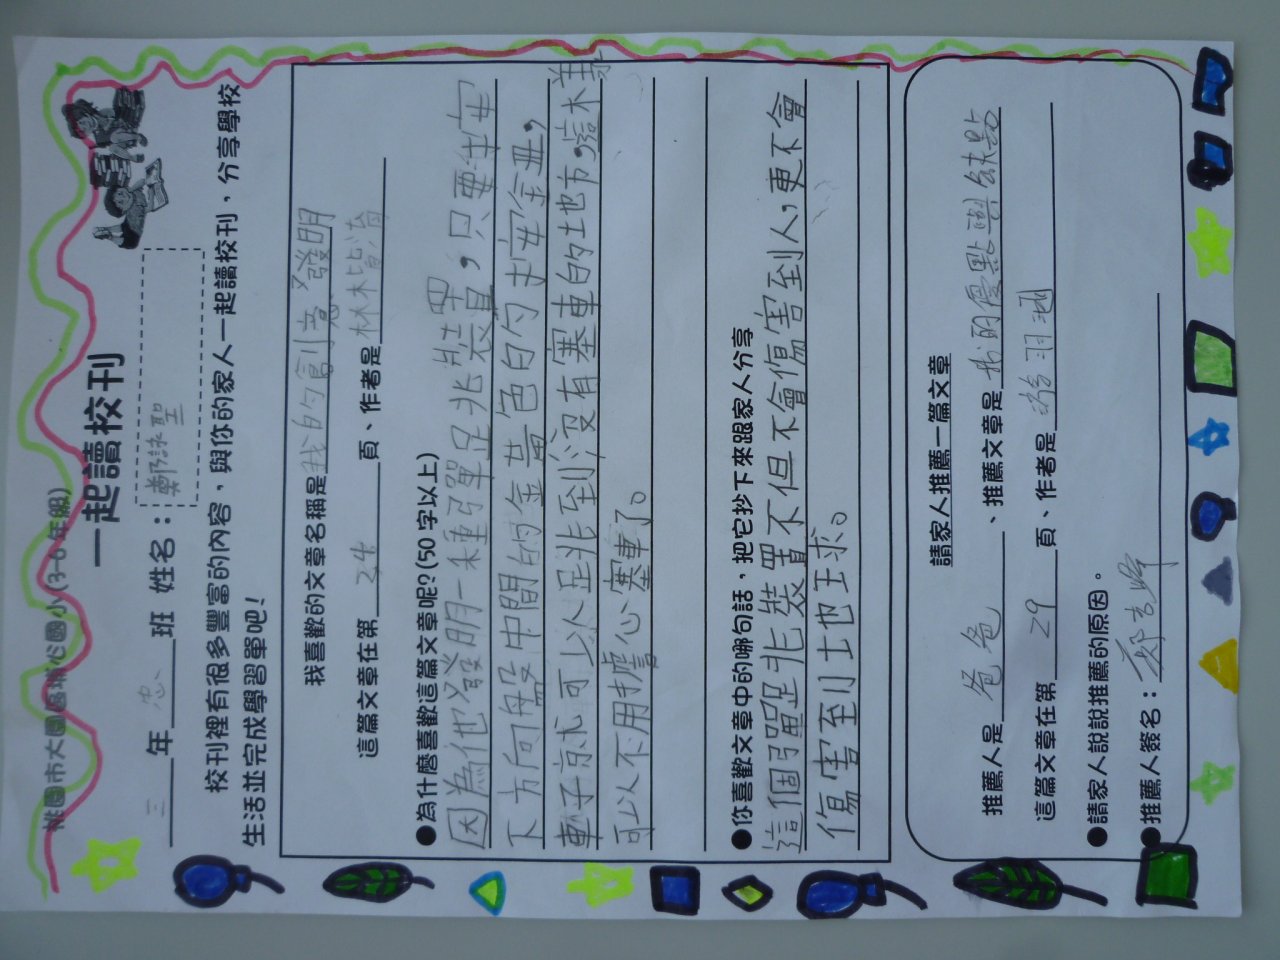 桃園市大園區埔心國小(3-6年級)
一起讀校刊
三年忠班 姓名：鄭詠聖
校刊裡有很多豐富的內容，與你的家人一起讀校刊，分享學校
生活並完成學習單吧！
我喜歡的文章名稱是我的創意發明
這篇文章在第24頁、作者是林
●為什麼喜歡這篇文章呢？(50字以上)
因為他發明一種彈足兆裝置，只要在安
下方向盤中間的金黃色的按鈕，
車子就可以足兆到沒有塞車的地方，這樣
可以不用擔心塞車了。
●你喜歡文章中的哪句話，把它抄下來跟家人分享
這個彈足兆裝置不但不會傷害到人，更不會
傷害到土也王求。
請家人推薦一篇文章
推薦人是爸爸、推薦文章是我的優點與缺點
這篇文章在第29頁、作者是羽涵
●請家人說說推薦的原因。
●推薦人簽名：